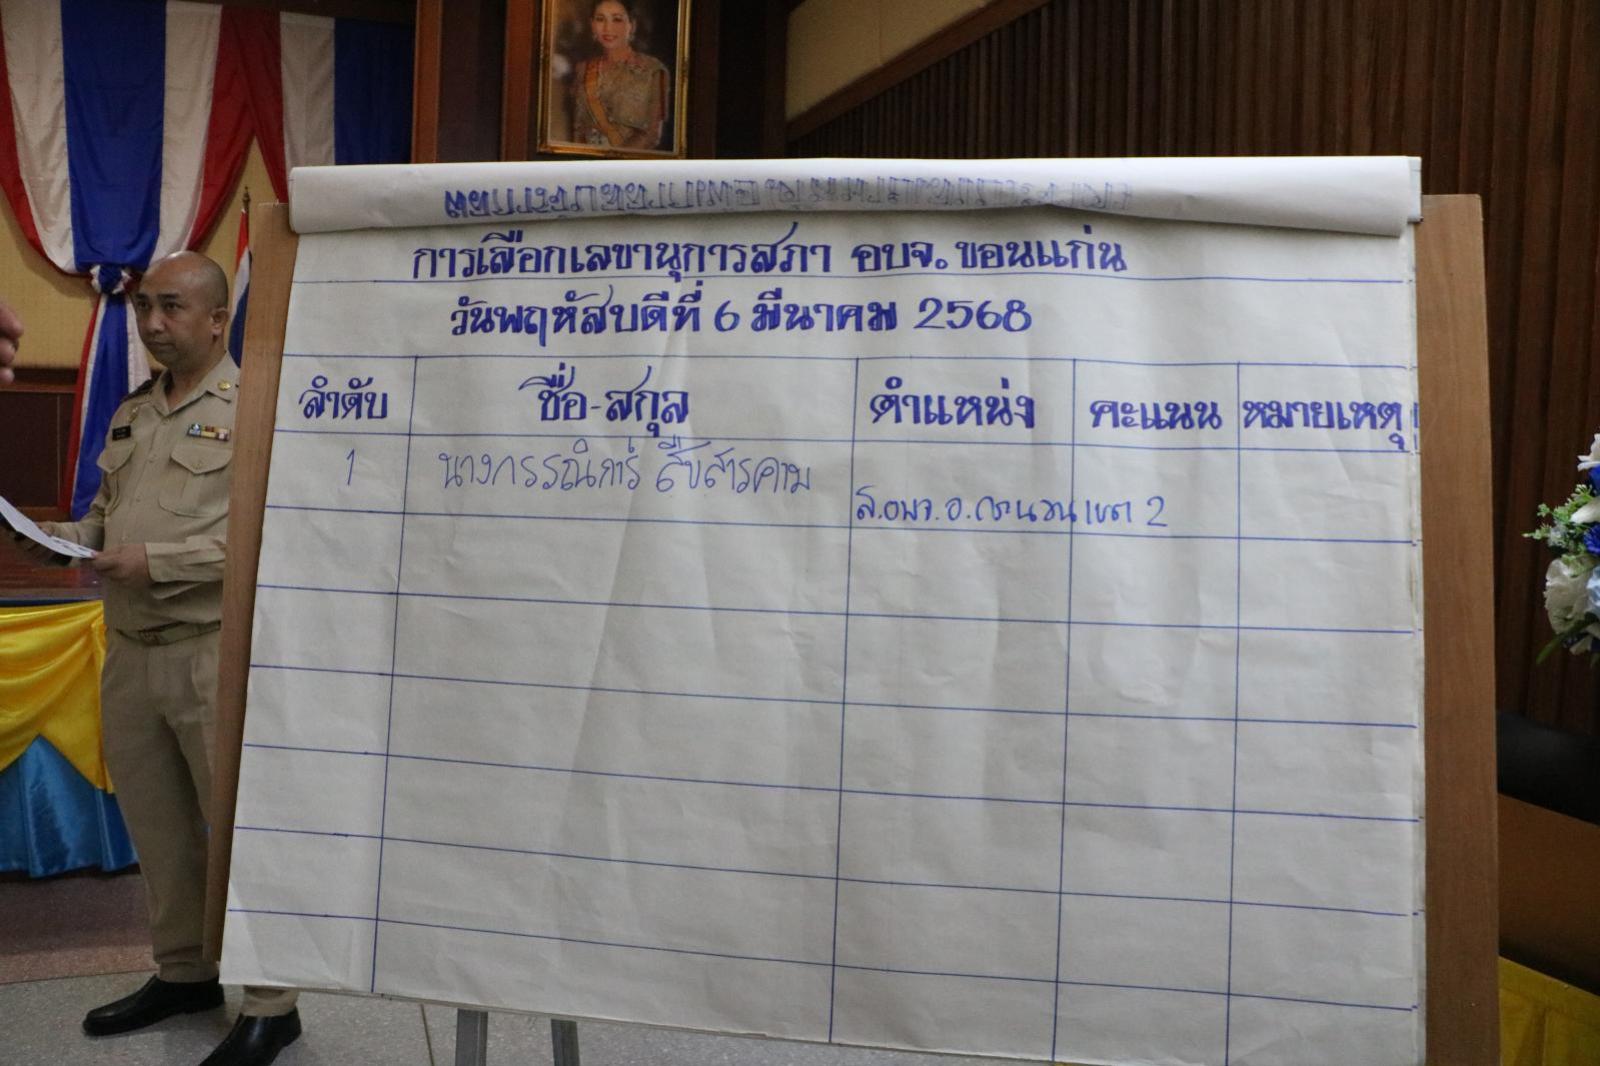 การเลือกเลขานุการสภา อบจ.ขอนแก่น
วันพฤหัสบดีที่ 6 มีนาคม 2568
ลำดับ ชื่อ-สกุล ตำแหน่ง คะแนน หมายเหตุ
1 นางกรรณิการ์ สืบสารคาม ส.อบจ.อ.กระนวน เขต 2